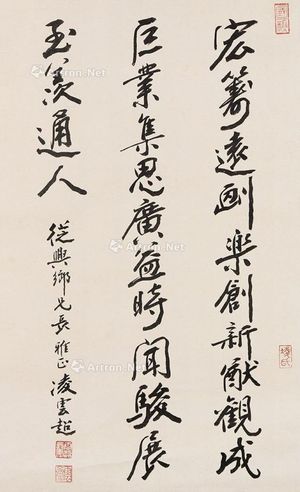 宏籌遠劃樂創新猷觀成
巨業集思廣益時聞駿展
玉羨通人
從興鄉兄長雅正凌雲超
ArtNon.Net
ArtNon.Net
ArtNon.Net
ArtNon.Net